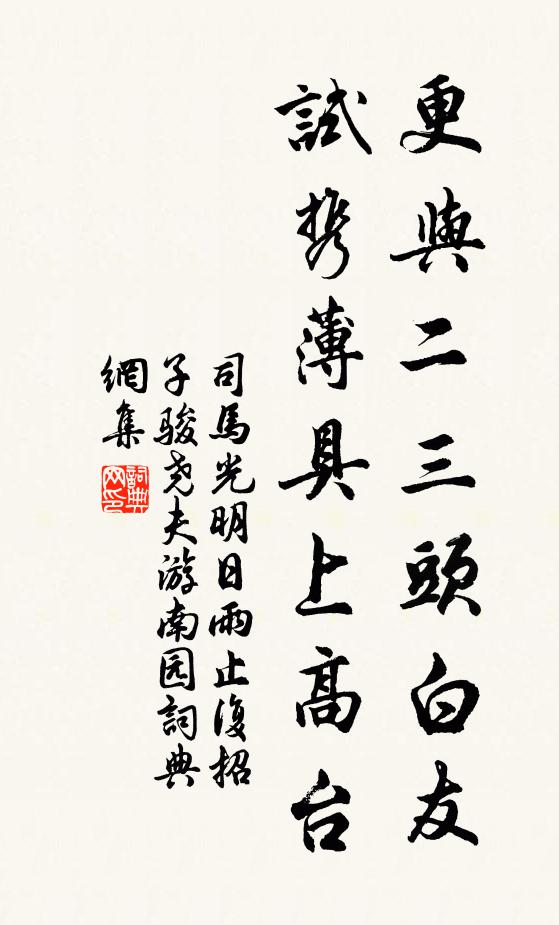 更與二三頭白友
試携薄具上高台
司馬光明日雨止復招
子駿尧夫游南园詞典
網集
詞典
网印